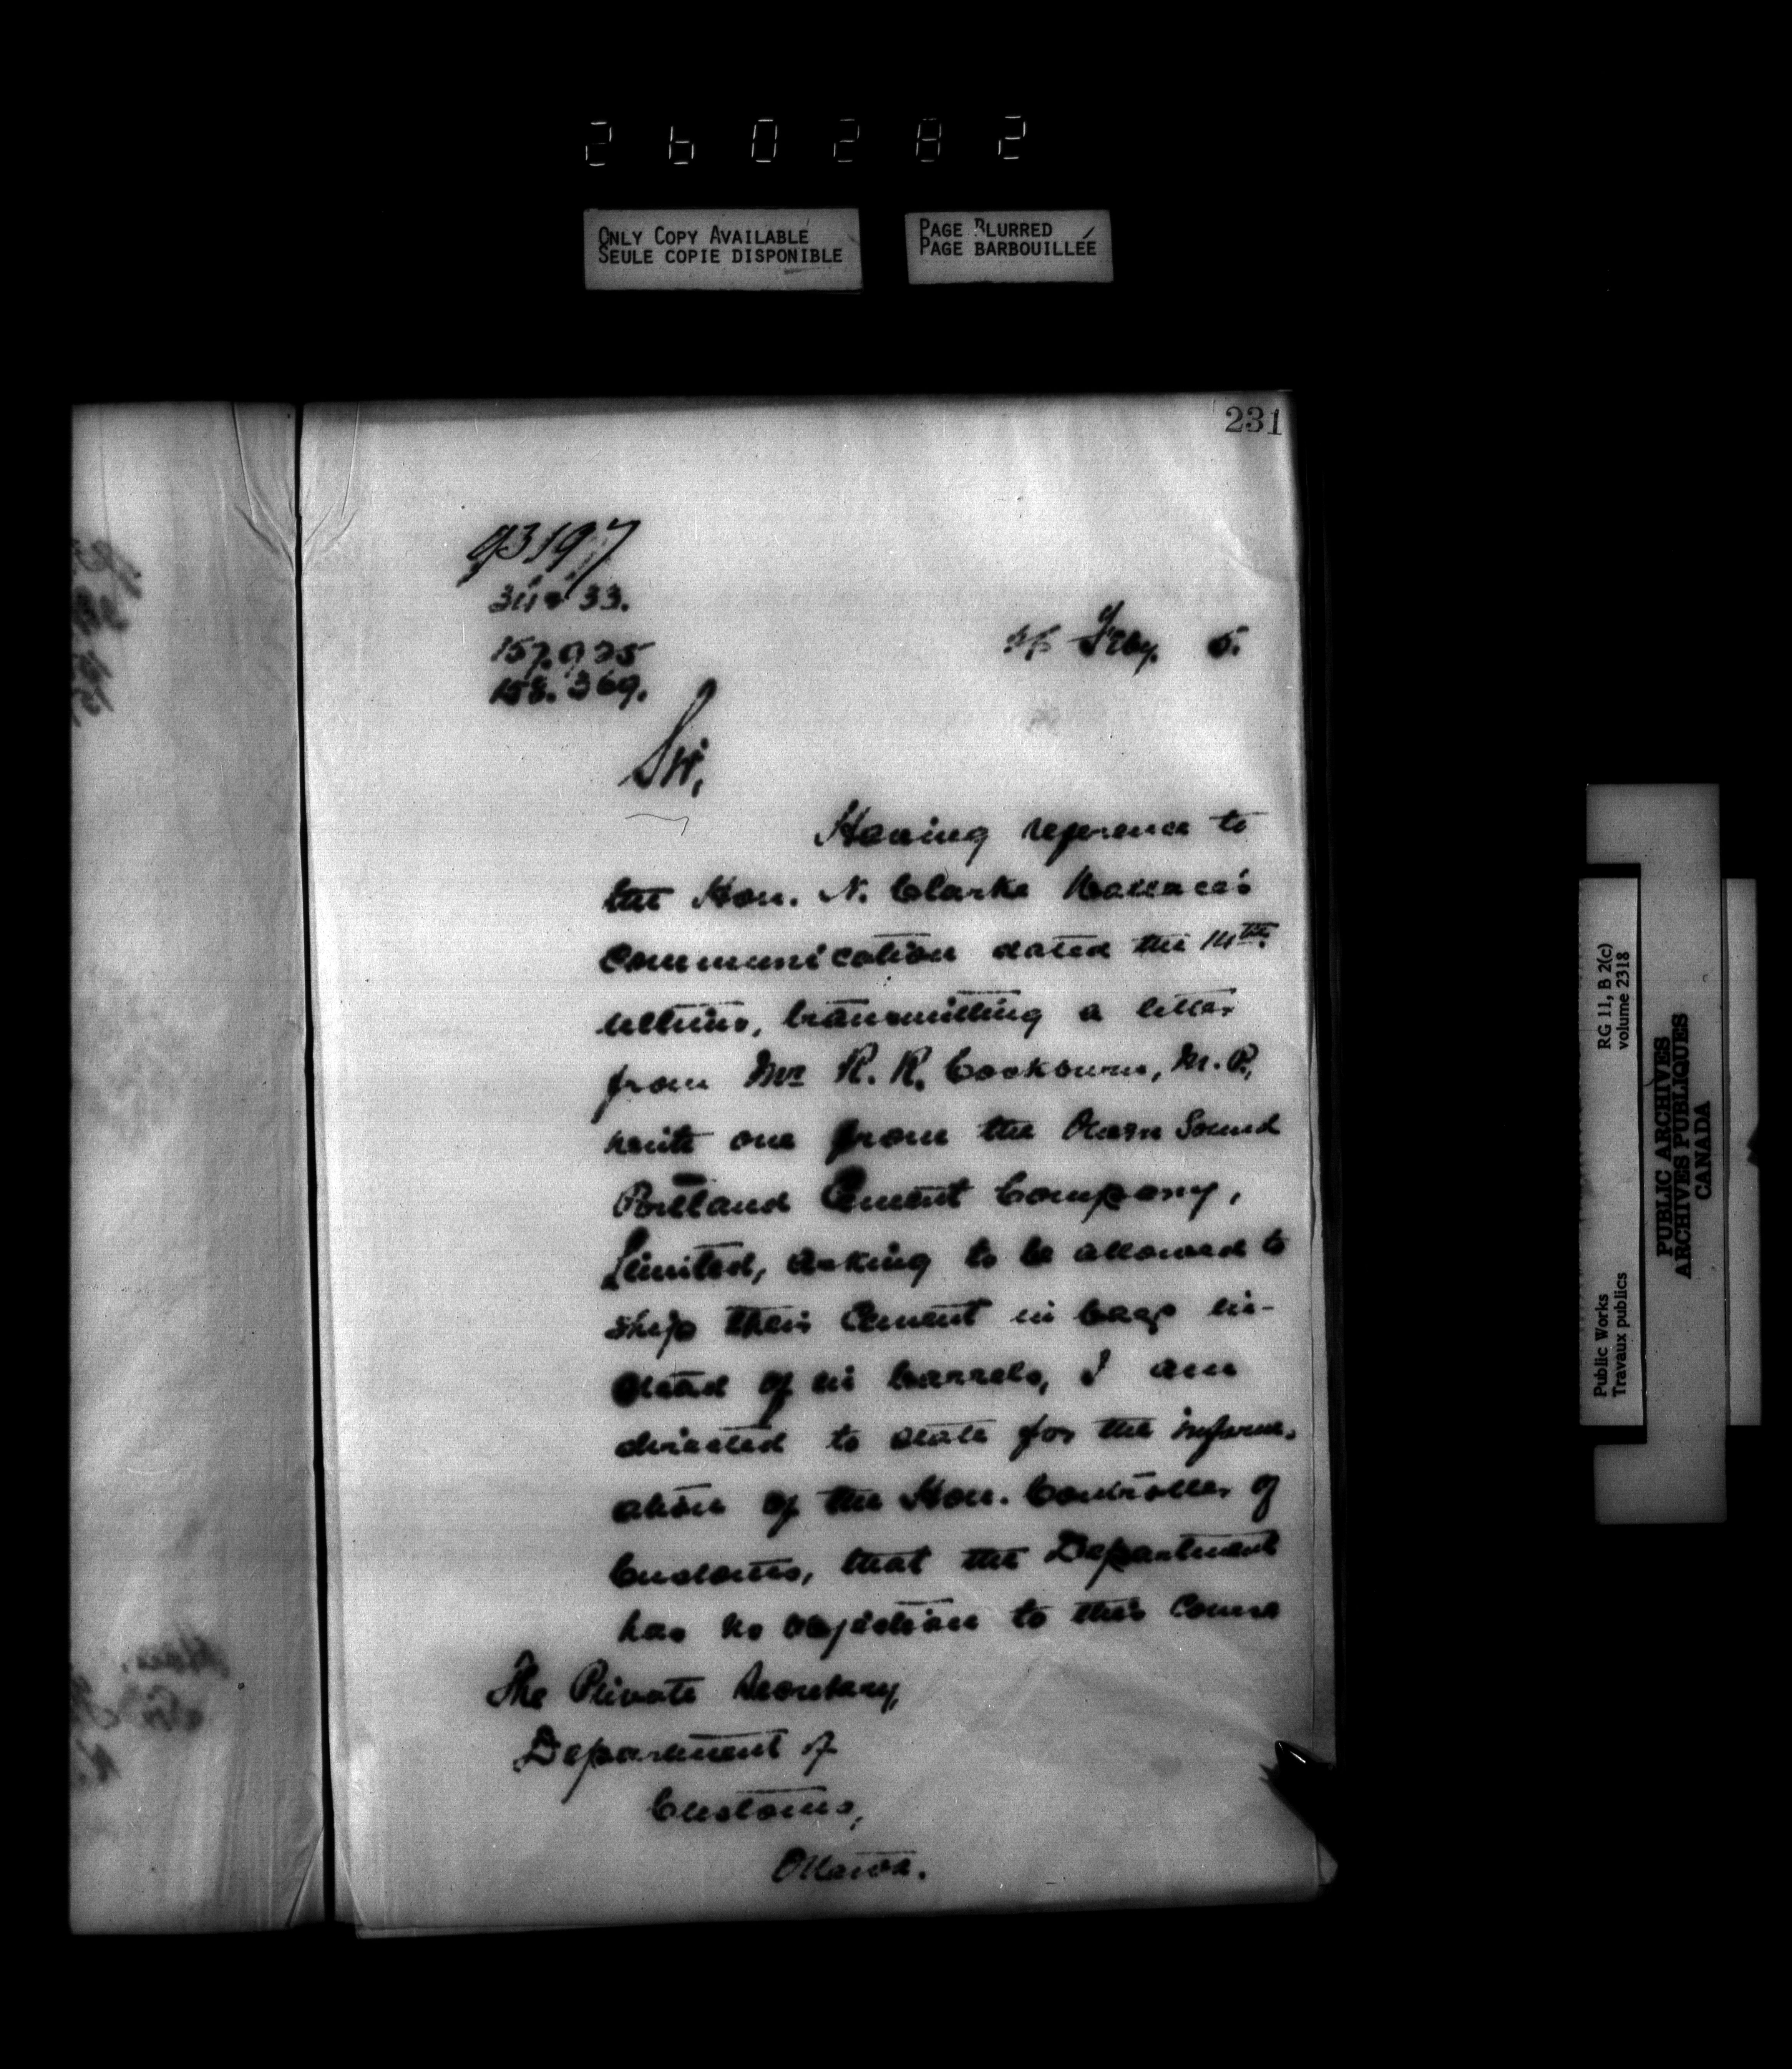 2 6 0 2 8 2
ONLY COPY AVAILABLE
SEULE COPIE DISPONIBLE
PAGE BLURRED
PAGE BARBOUILLÉE
231
93197
157.925
158.369.
Feby. 5.
Sir,
Having reference to
the Hon. N. Clarke Wallace's
Communication dated the 14th
ultimo, transmitting a letter
from Mr R. R. Cockburn, M.P.,
with one from the Owen Sound
Portland Cement Company,
Limited, asking to be allowed to
ship their Cement in bags in-
stead of in barrels, I am
directed to state for the inform-
ation of the Hon. Controller of
Customs, that the Department
has no objection to this course
The Private Secretary,
Department of
Customs,
Ottawa.
Public Works
Travaux publics
RG 11, B 2(c)
volume 2318
PUBLIC ARCHIVES
ARCHIVES PUBLIQUES
CANADA